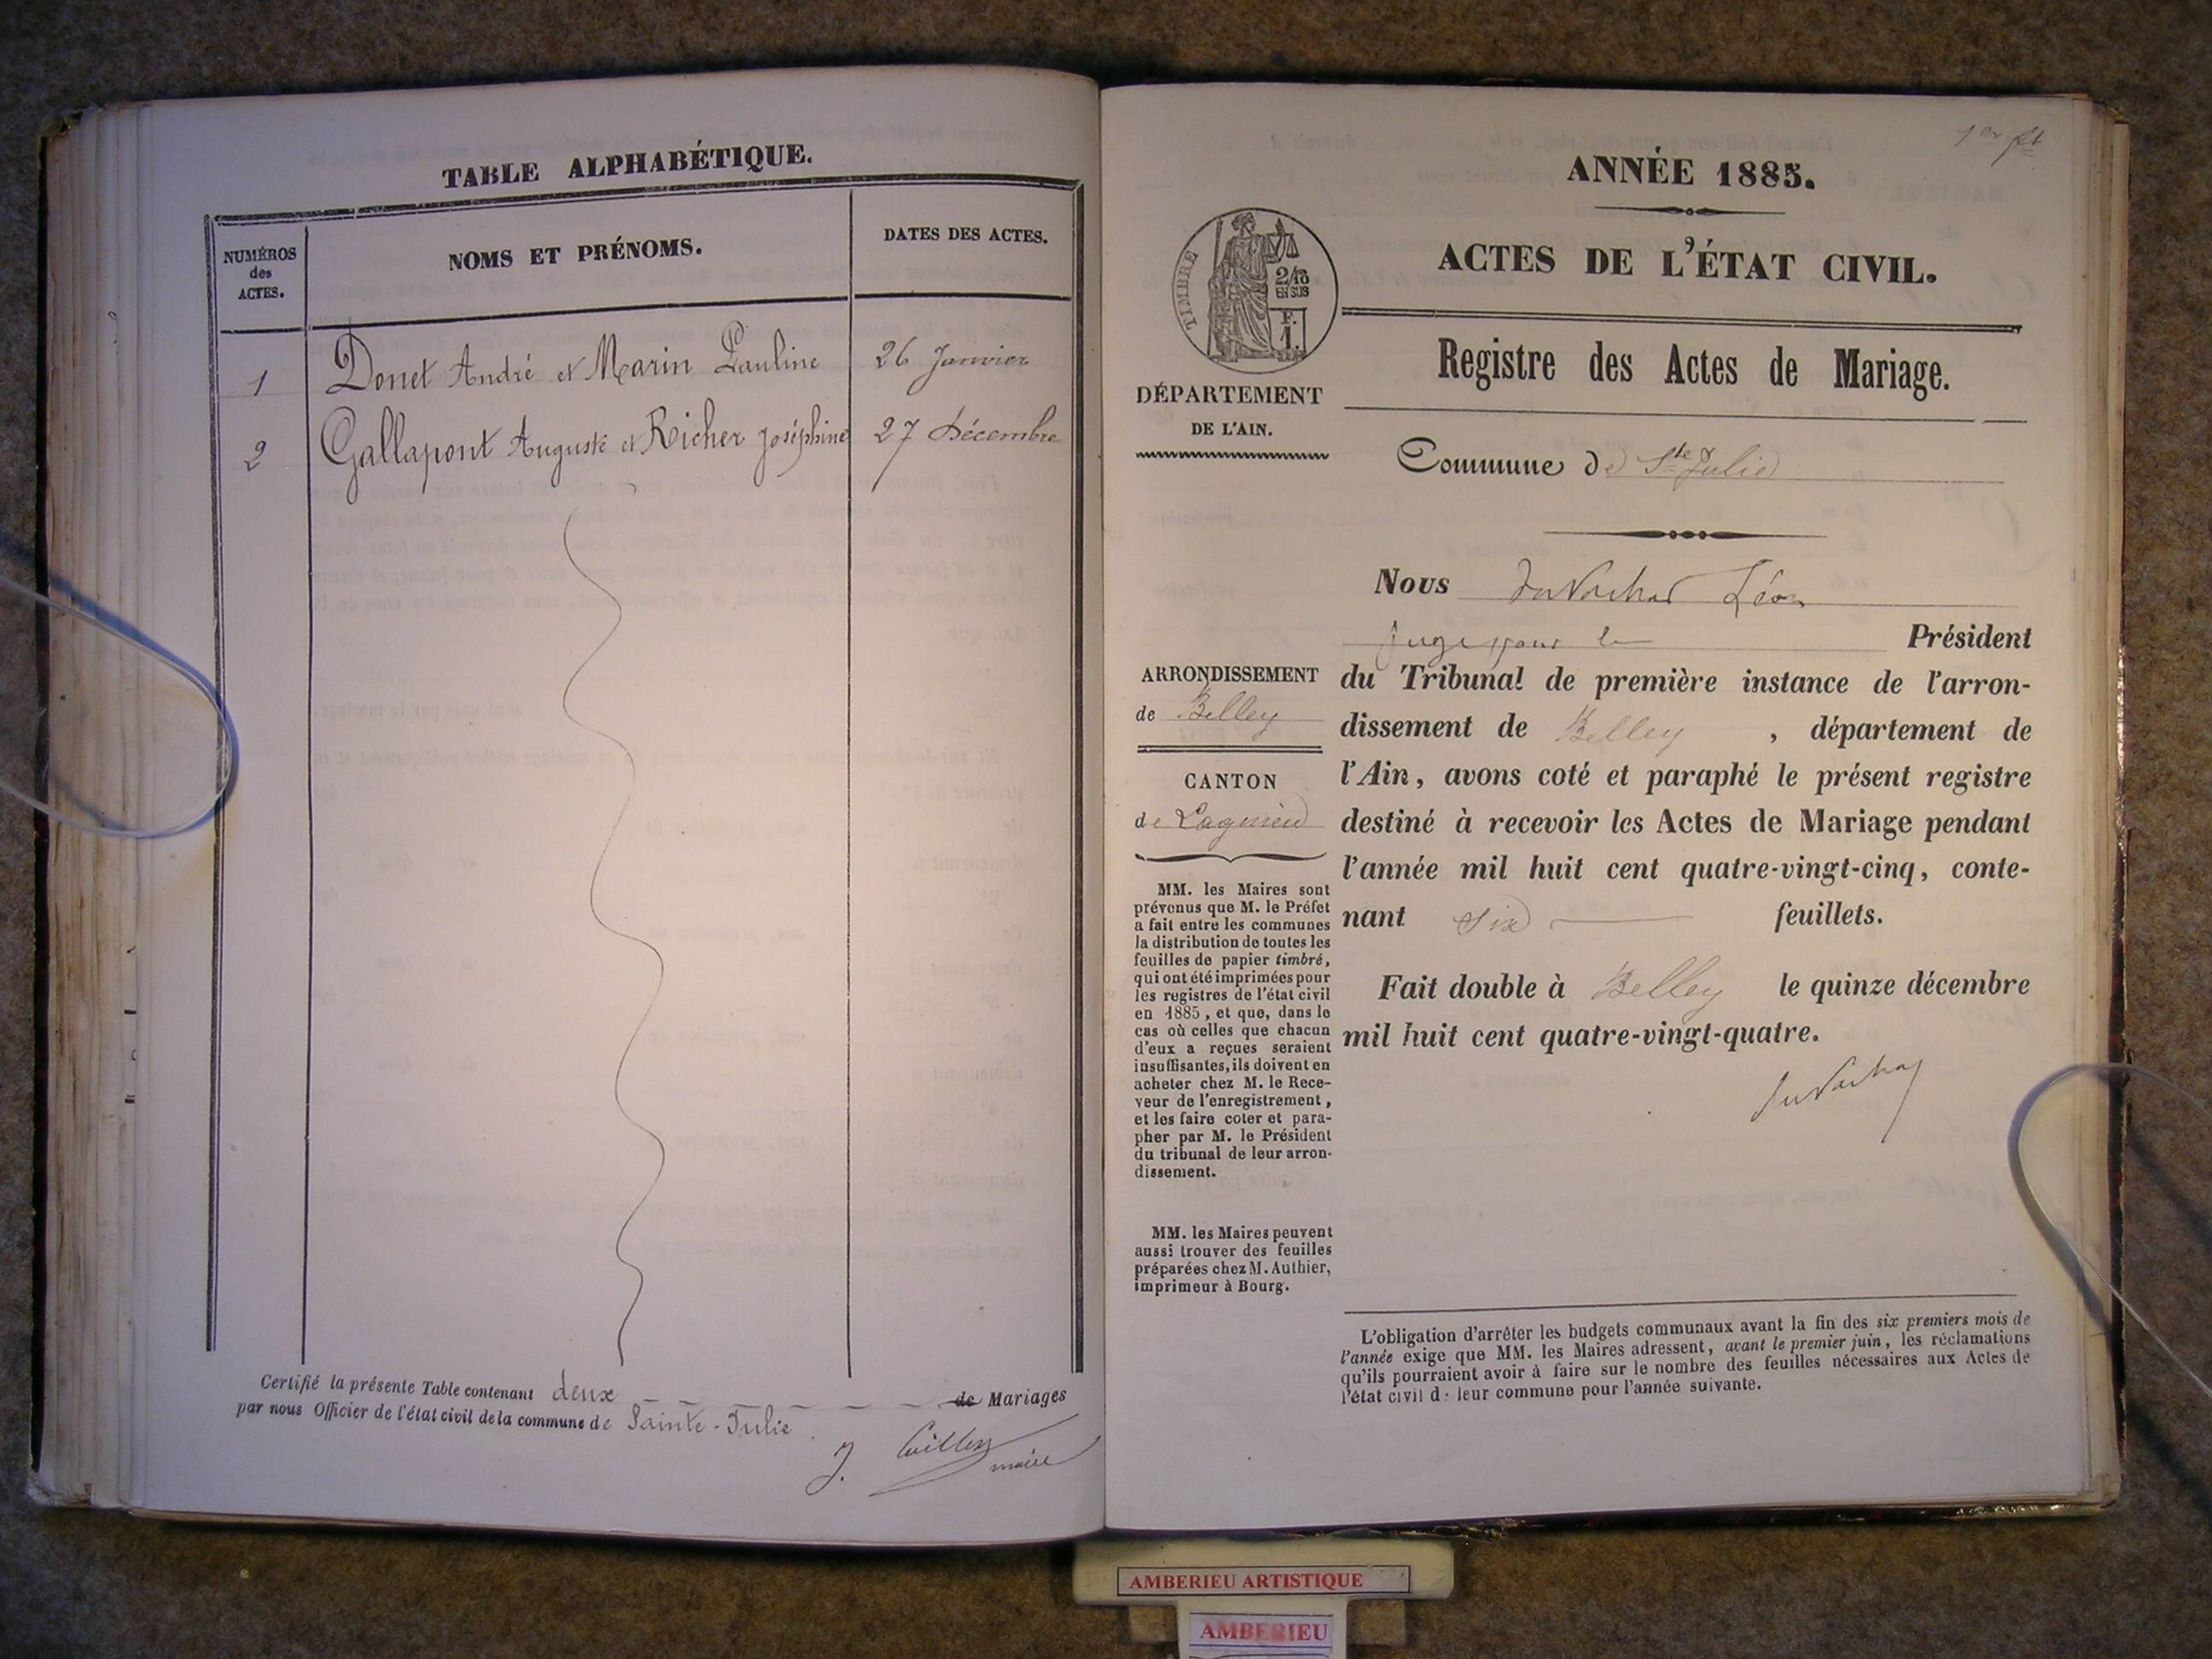 TABLE ALPHABÉTIQUE.
NUMÉROS
des
ACTES.
NOMS ET PRÉNOMS.
DATES DES ACTES.
1 Donet André et Marin Pauline 26 Janvier
2 Gallapont Auguste et Richer Joséphine 27 Décembre
Certifié la présente Table contenant deux de Mariages
par nous Officier de l'état civil de la commune de Sainte-Julie
J. maire
1er ft
ANNÉE 1885.
TIMBRE
2/10
EN SUS
F.
1.
ACTES DE L'ÉTAT CIVIL.
Registre des Actes de Mariage.
DÉPARTEMENT
DE L'AIN.
Commune de Ste Julie
Nous Léon
Juge pour le Président
du Tribunal de première instance de l'arron-
dissement de Belley, département de
l'Ain, avons coté et paraphé le présent registre
destiné à recevoir les Actes de Mariage pendant
l'année mil huit cent quatre-vingt-cinq, conte-
nant six feuillets.
Fait double à Belley le quinze décembre
mil huit cent quatre-vingt-quatre.
ARRONDISSEMENT
de Belley
CANTON
de Lagnieu
MM. les Maires sont
prévenus que M. le Préfet
a fait entre les communes
la distribution de toutes les
feuilles de papier timbré,
qui ont été imprimées pour
les registres de l'état civil
en 1885, et que, dans le
cas où celles que chacun
d'eux a reçues seraient
insuffisantes, ils doivent en
acheter chez M. le Rece-
veur de l'enregistrement,
et les faire coter et para-
pher par M. le Président
du tribunal de leur arron-
dissement.
MM. les Maires peuvent
aussi trouver des feuilles
préparées chez M. Authier,
imprimeur à Bourg.
L'obligation d'arrêter les budgets communaux avant la fin des six premiers mois de
l'année exige que MM. les Maires adressent, avant le premier juin, les réclamations
qu'ils pourraient avoir à faire sur le nombre des feuilles nécessaires aux Actes de
l'état civil d: leur commune pour l'année suivante.
AMBERIEU ARTISTIQUE
AMBERIEU